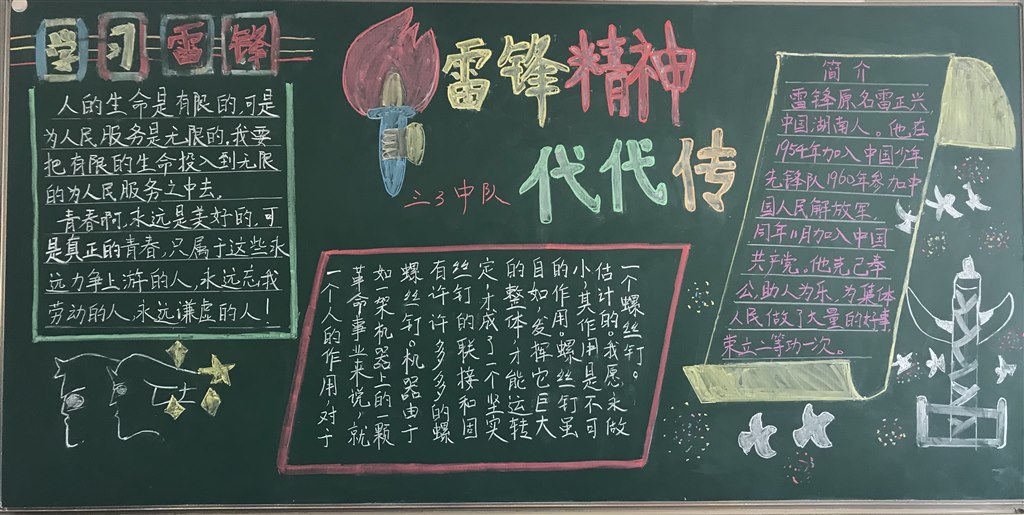 学习雷锋
人的生命是有限的,可是
为人民服务是无限的,我要
把有限的生命投入到无限
的为人民服务之中去。
青春啊,永远是美好的,可
是真正的青春,只属于这些永
远力争上游的人,永远忘我
劳动的人,永远谦虚的人!
雷锋精神
代代传
三3中队
一个人的作用,对于
革命事业来说,就
如一架机器上的一颗
螺丝钉。机器由于
有许许多多的螺
丝钉的联接和固
定,才成了一个坚实
的整体,才能运转
自如,发挥它巨大
的作用。螺丝钉虽
小,其作用是不可
估计的。我愿永做
一个螺丝钉。
简介
雷锋原名雷正兴
中国湖南人。他在
1954年加入中国少年
先锋队1960年参加中
国人民解放军,
同年11月加入中国
共产党。他克己奉
公,助人为乐,为集体
人民做了大量的好事
荣立二等功一次。